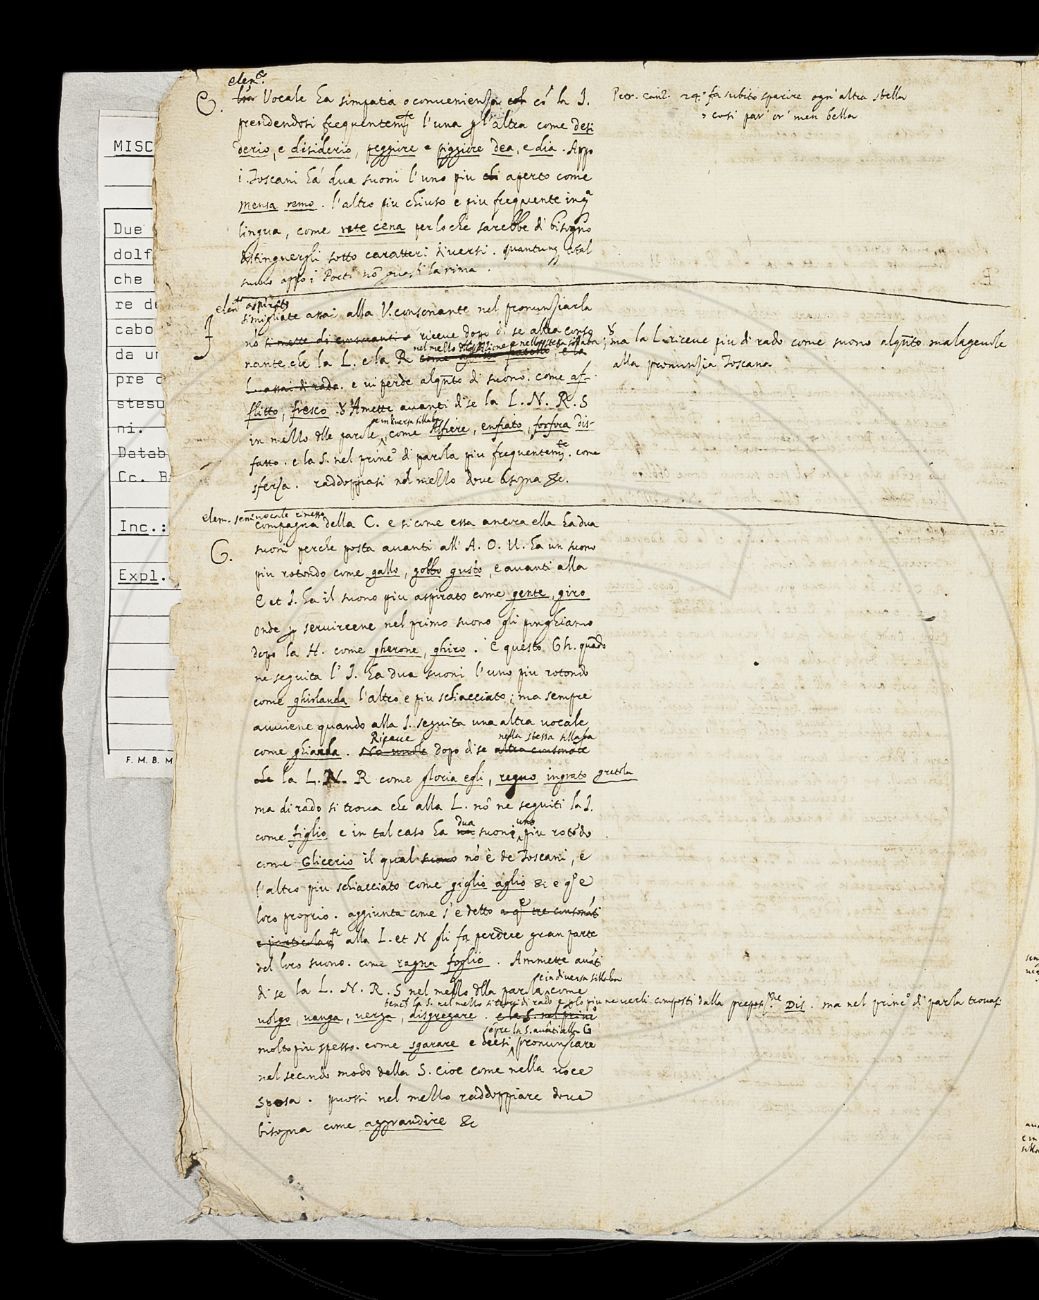 MISC
Due
dolf
che
re de
cabo
da un
pre d
stesu
ni.
Datab
Cc. B
Inc.:
Expl.
F. M. B. M
elem.
E. Vocale ha simpatia o convenienza co' la I.
prendendosi frequentem.te l'una p l'altra come desi
derio, e disiderio, peggiore e piggiore dea, e dia. Appo
i Toscani ha dua suoni l'uno piu aperto come
mensa remo. l'altro piu chiuso e piu frequente in q.a
lingua, come rete cena perloche sarebbe di bisogno
distinguergli sotto caratteri diversi. quantunq
subio appo i Poeti no' guasti la rima.
Petr. canz. 24. fa subito sparire ogn'altra stella
cosi par or men bella
elem. aspirato
F simigliate assai alla V. consonante nel pronunziarla
no' riceve dopo di se altra conso
nel mezzo della dizione e nella stessa sillaba
nante, che la L. e la R.
e vi perde alq.nto di suono. come af-
flitto, fresco. Amette avanti di se la L. N. R. S
in mezzo delle parole, come, enfiato, forfora dis-
e in diversa sillaba
fatto. e la S. nel princ.o di parola piu frequentem.te. come
sferza. raddoppiasi nel mezzo dove bisogna &c.
ma la L. riceve piu di rado come suono alq.nto malagevole
alla pronunzia Toscana
elem. semivocale
compagna della C. e sicome essa ancora ella ha dua
G. suoni perche posta avanti all' A. O. U. ha un suono
piu rotondo come gallo, gobbo gusto, e avanti alla
E et I. ha il suono piu aspirato come gente, giro
onde p servircene nel primo suono gli pinghiamo
dopo la H. come gherone, ghiro. E questo Gh. qua'do
ne seguita l' I. ha dua suoni l'uno piu rotondo
come ghirlanda l'altro e piu schiacciato; ma sempre
avviene quando alla I. seguita una altra vocale
come ghianda. Riceve dopo di se nella stessa sillaba
la L. N. R come gloria egli, regno ingrato gretola
ma di rado si trova che alla L. no' ne seguiti la I.
come figlio e in tal caso ha dua suoni uno piu roto'do
come Glicerio il qual no' è de Toscani, e
l'altro piu schiacciato come giglio aglio &c e q.o e
loro proprio. aggiunta come s'e detto
alla L. et N gli fa perdere gran parte
del loro suono. come ragna foglio. Ammette ava'ti
di se la L. N. R. S nel mezzo della parola come
e in diversa sillaba
volgo, vanga, verga, disgregare.
la S. nel mezzo si trovi di rado e solo piu ne verbi composti dalla preposiz.ne DIS. ma nel princ.o di parola trovasi
molto piu spesso. come sgarare e deesi pronunziare
sempre la S. ava'ti alla G
nel secondo modo della S. cioe come nella voce
sposa. puossi nel mezzo raddoppiare dove
bisogna come aggrandire &c